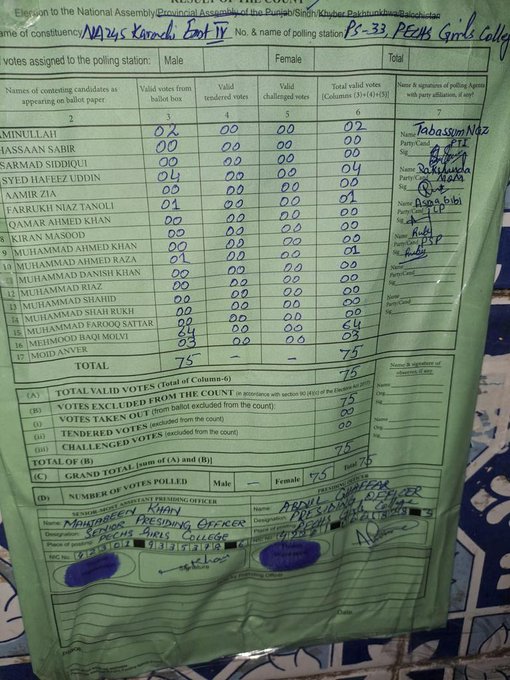 RESULT OF THE COUNT
Election to the National Assembly/Provincial Assembly of the Punjab/Sindh/Khyber Pakhtunkhwa/Balochistan
ame of constituency NA245 Karachi East IV No. & name of polling station PS-33, PECHS Girls College
votes assigned to the polling station: Male Female Total
Names of contesting candidates as appearing on ballot paper Valid votes from ballot box Valid tendered votes Valid challenged votes Total valid votes [Columns (3)+(4)+(5)] Name & signature of polling Agents with party affiliation, if any?
2 3 4 5 6 7
AMINULLAH 02 00 00 02
HASSAAN SABIR 00 00 00 00
SARMAD SIDDIQUI 00 00 00 00
SYED HAFEEZ UDDIN 04 00 00 04
AAMIR ZIA 00 00 00 00
FARRUKH NIAZ TANOLI 01 00 00 01
QAMAR AHMED KHAN 00 00 00 00
8 KIRAN MASOOD 00 00 00 00
9 MUHAMMAD AHMED KHAN 00 00 00 00
10 MUHAMMAD AHMED RAZA 01 00 00 01
MUHAMMAD DANISH KHAN 00 00 00 00
12 MUHAMMAD RIAZ 00 00 00 00
13 MUHAMMAD SHAHID 00 00 00 00
14 MUHAMMAD SHAH RUKH 00 00 00 00
15 MUHAMMAD FAROOQ SATTAR 00 00 00 00
16 MEHMOOD BAQI MOLVI 64 00 00 64
17 MOID ANVER 03 00 00 03
TOTAL 75 – – 75
Name Tabassum Naz
Party/Cand PTI
Sig
Name Rakshunda
Party/Cand MQM
Sig
Name Asma bibi
Party/Cand TLP
Sig
Name Ruby
Party/Cand PSP
Sig Ruby
Name
Party/Cand
Sig
Name & signature of observer, if any
(A) TOTAL VALID VOTES (Total of Column-6) 75
(B) VOTES EXCLUDED FROM THE COUNT (in accordance with section 90 (4)(c) of the Elections Act 2017)
(i) VOTES TAKEN OUT (from ballot excluded from the count): 75
(ii) TENDERED VOTES (excluded from the count) 00
(iii) CHALLENGED VOTES (excluded from the count) 00
TOTAL OF (B)
(C) GRAND TOTAL [sum of (A) and (B)] 75
(D) NUMBER OF VOTES POLLED Male – Female 75 Total 75
SENIOR-MOST ASSISTANT PRESIDING OFFICER
Name MAHJABEEN KHAN
Designation: SENIOR PRESIDING OFFICER
Place of posting: PECHS GIRLS COLLEGE
NIC No
Signature
PRESIDING OFFICER
Name ABDUL GHAFFAR
Designation PRESIDING OFFICER
Place of posting PECHS Girls College
NIC No
Date
Place